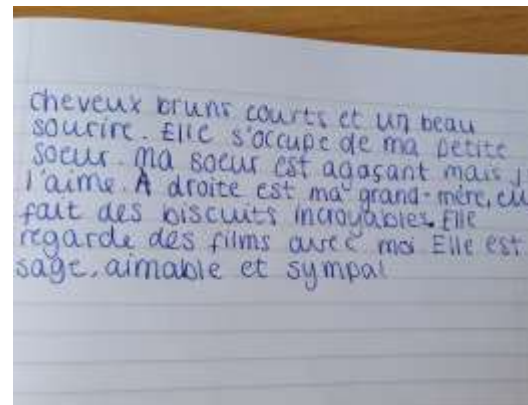 cheveux bruns courts et un beau
sourire. Elle s'occupe de ma petite
soeur. Ma soeur est agaçant mais j
l'aime. A droite est ma grand-mère, ell
fait des biscuits incroyables. Elle
regarde des films avec moi Elle est
sage, aimable et sympa!